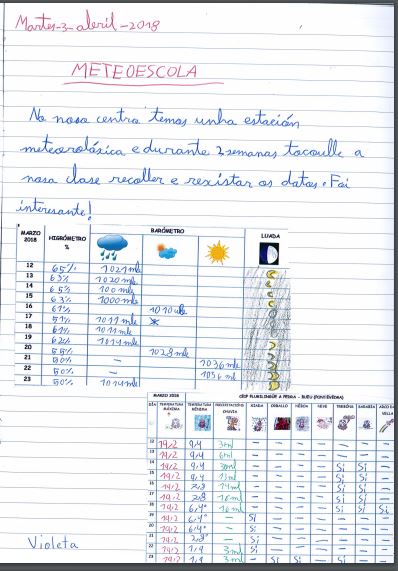 Martes-3-abril-2018
METEOESCOLA
No noso centro temos unha estación
meteorolóxica e durante 2 semanas tocoulle a
nosa clase recoller e rexistar os datos. Foi
interesante!
MARZO 2018 HIGRÓMETRO % BARÓMETRO LUADA
12 65% 1021 mb
13 63% 1020 mb
14 65%
15 63% 1000 mb
16 67% 1010 mb
17 51% 1011 mb
18 61% 1011 mb
19 62% 1014 mb
20 55% 1028 mb
21 50% – 1036 mb
22 50% –
23 50% 1014 mb
MARZO 2018 CEIP PLURILINGÜE A PEDRA - BUEU (PONTEVEDRA)
DÍA TEMPERATURA MÁXIMA TEMPERATURA MÍNIMA CHUVIA XIADA ORBALLO NÉBOA NEVE TREBÓN SARABIA ARCO DA VELLA
12 19,2 9,4 3ml – – – – – – –
13 19,2 9,4 – – – – – – –
14 19,2 9,4 – – – – Si Si –
15 19,2 9,4 – – – – Si Si –
16 19,2 – – – – Si Si –
17 19,2 – – – – Si Si –
18 19,2 – – – – Si Si Si
19 19,2 Si – – – – – –
20 19,2 Si – – – – – –
21 19,2 Si – – – – – –
22 19,2 1,9 3ml Si – – – – – –
23 19,2 1,9 3ml – Si Si – Si – –
Violeta